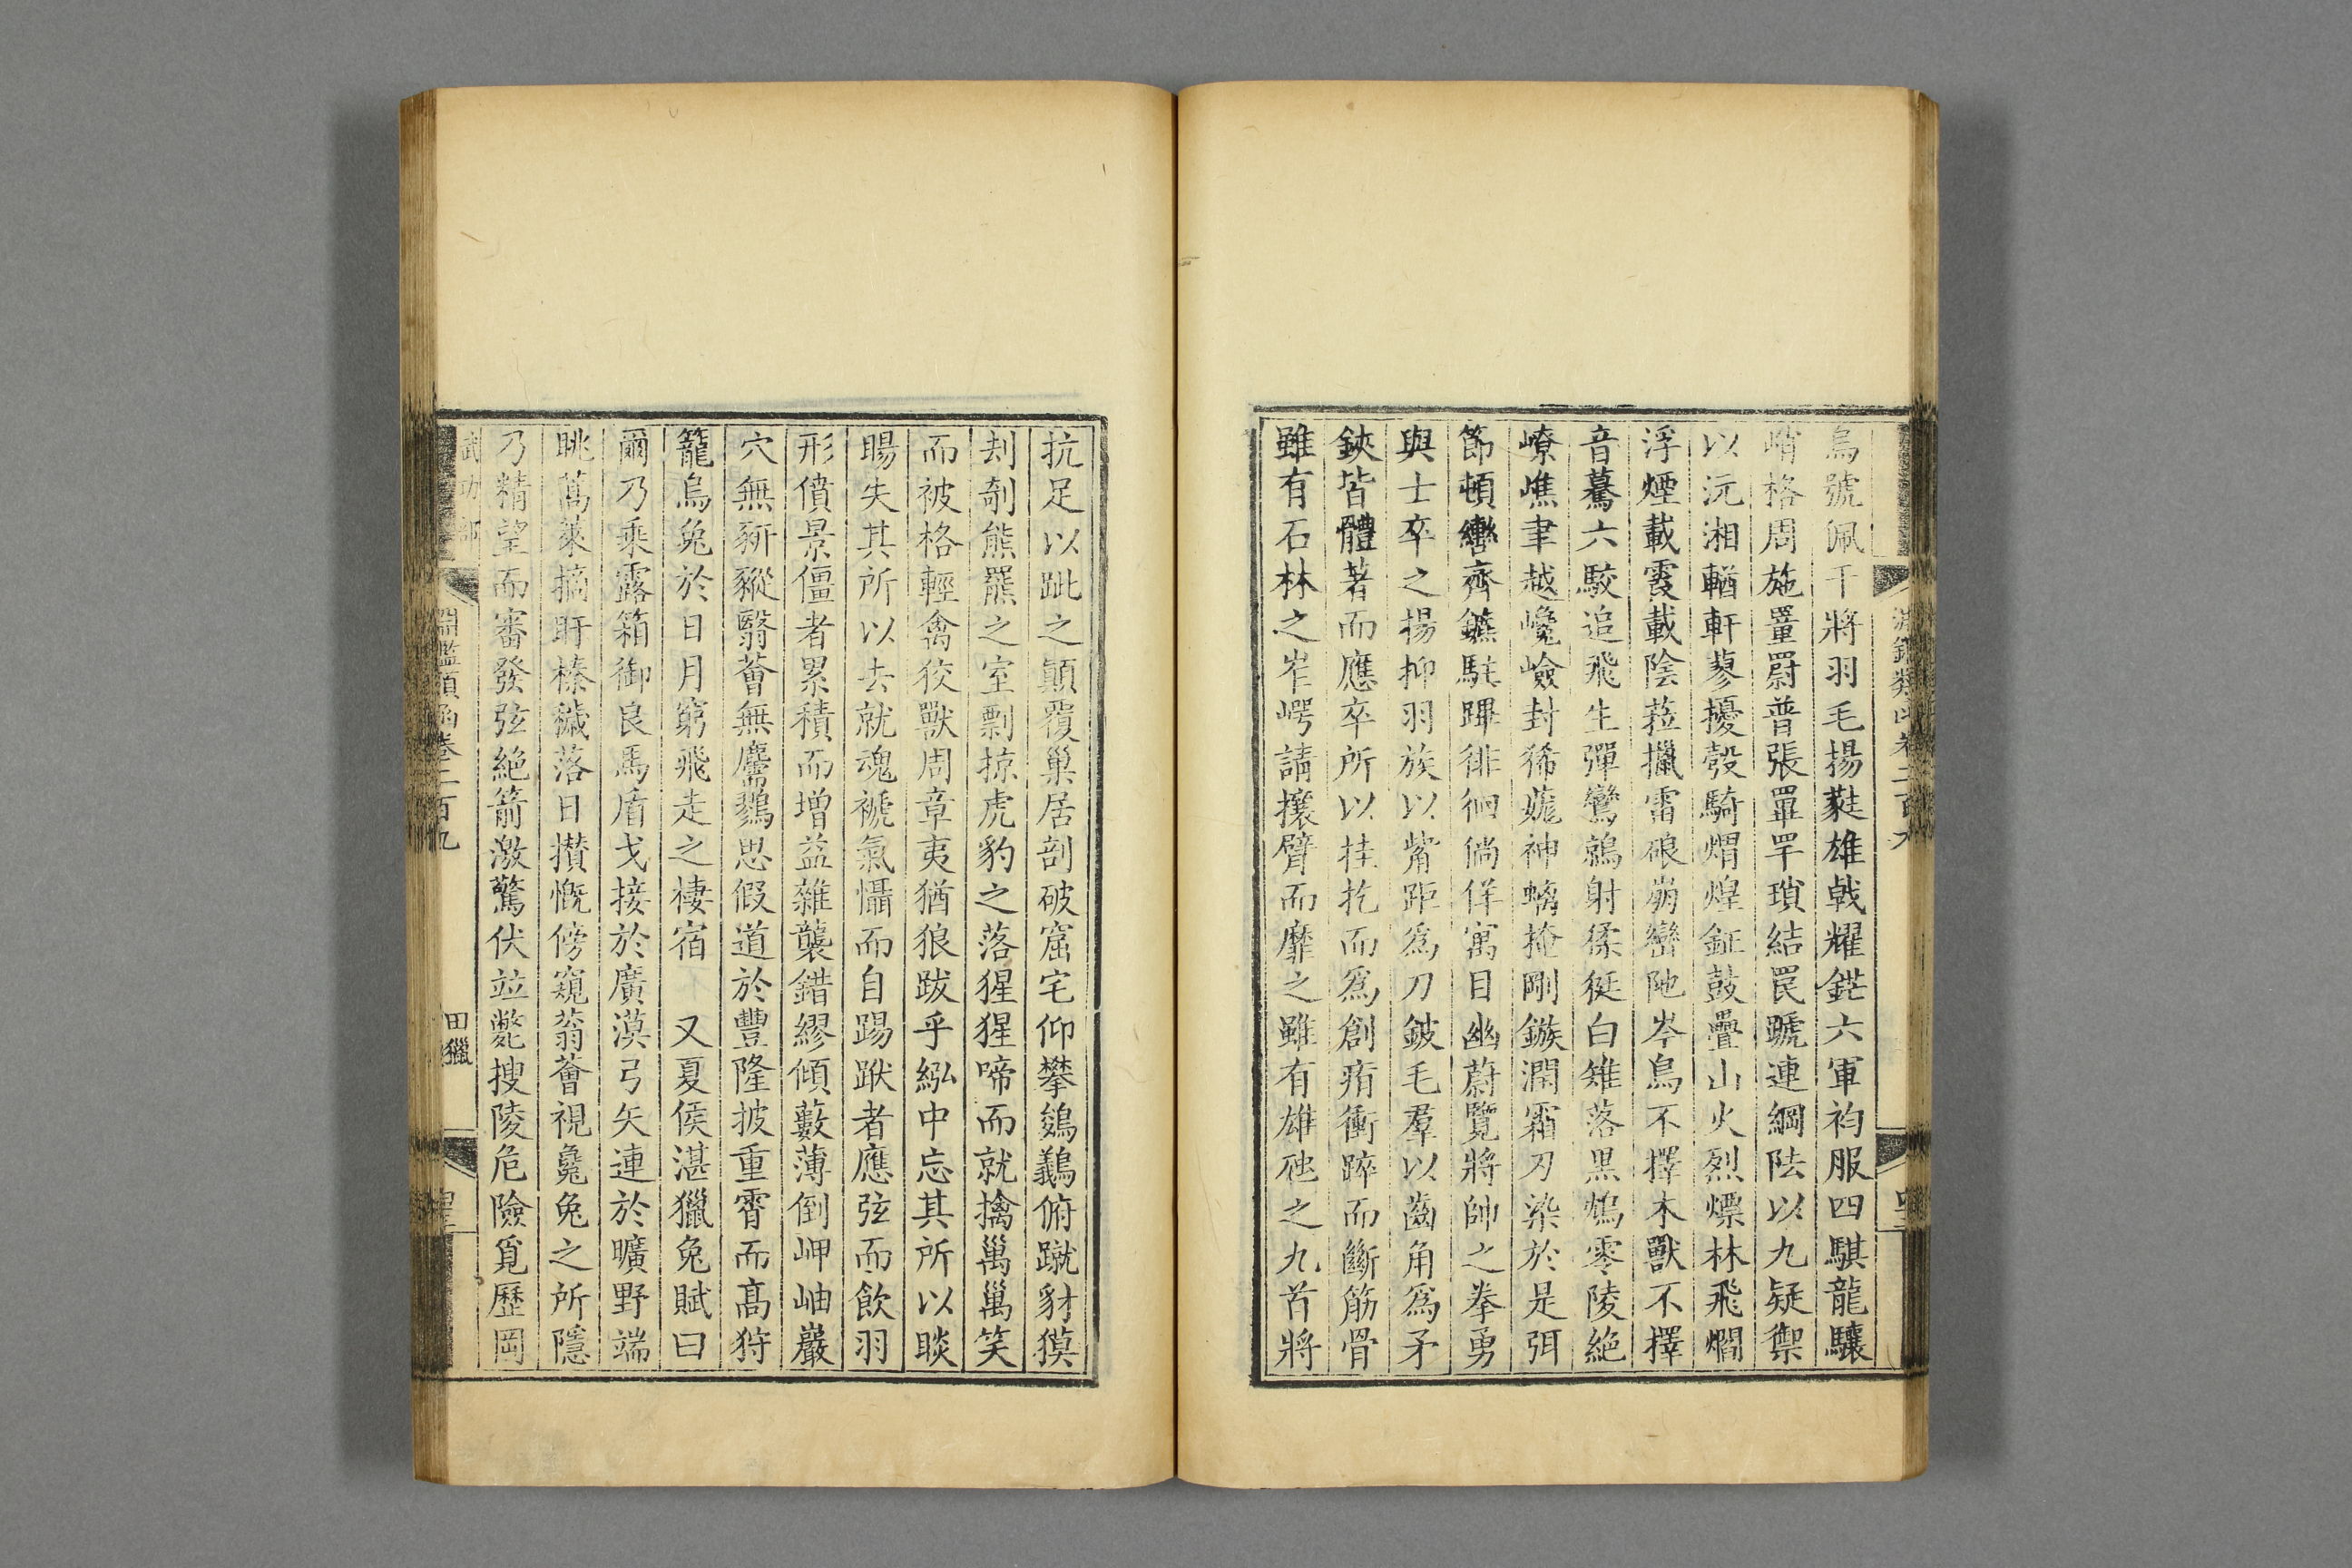 烏號佩干將羽毛揚蕤雄戟耀鋩六軍袀服四騏龍驤
峭格周施罿罻普張罼罕瑣結罠蹏連綱阹以九疑禦
以沅湘輶軒蓼擾彀騎熠煌鉦鼓疊山火烈熛林飛爓
浮煙載霞載陰菈擸雷硠崩巒阤岑鳥不擇木獸不擇
音驀六駮追飛生彈鸞鶁射猱狿白雉落黑鴆零陵絕
嶛嶕聿越巉嶮封狶䝐神螭掩剛鏃潤霜刃染於是弭
節頓轡齊鑣駐蹕徘徊倘佯寓目幽蔚覽將帥之拳勇
與士卒之揚抑羽族以觜距爲刀鈹毛羣以齒角爲矛
鋏皆體著而應卒所以挂扢而爲創痏衝踤而斷筋骨
雖有石林之岝崿請攘臂而靡之雖有雄虺之九首將
抗足以跐之顛覆巢居剖破窟宅仰攀鵕鸃俯蹴豺獏
刦剞熊羆之室剽掠虎豹之落猩猩啼而就擒䔽䔽笑
而被格輕禽狡獸周章夷猶狼跋乎紭中忘其所以睒
睗失其所以去就魂褫氣懾而自踢跌者應弦而飲羽
形僨景僵者累積而增益雜襲錯繆傾藪薄倒岬岫巖
穴無豜豵翳薈無麡鷚思假道於豐隆披重霄而高狩
籠烏兔於日月窮飛走之棲宿 又夏侯湛獵兔賦曰
爾乃乘露箱御良馬盾戈接於廣漠弓矢連於曠野端
眺蒿萊摘盱榛穢落日攢慨傍窺蓊薈視毚兔之所隱
乃精望而審發弦絕箭激驚伏竝斃搜陵危險覓歷岡
武功部
淵鑑類函卷二百九
田獵